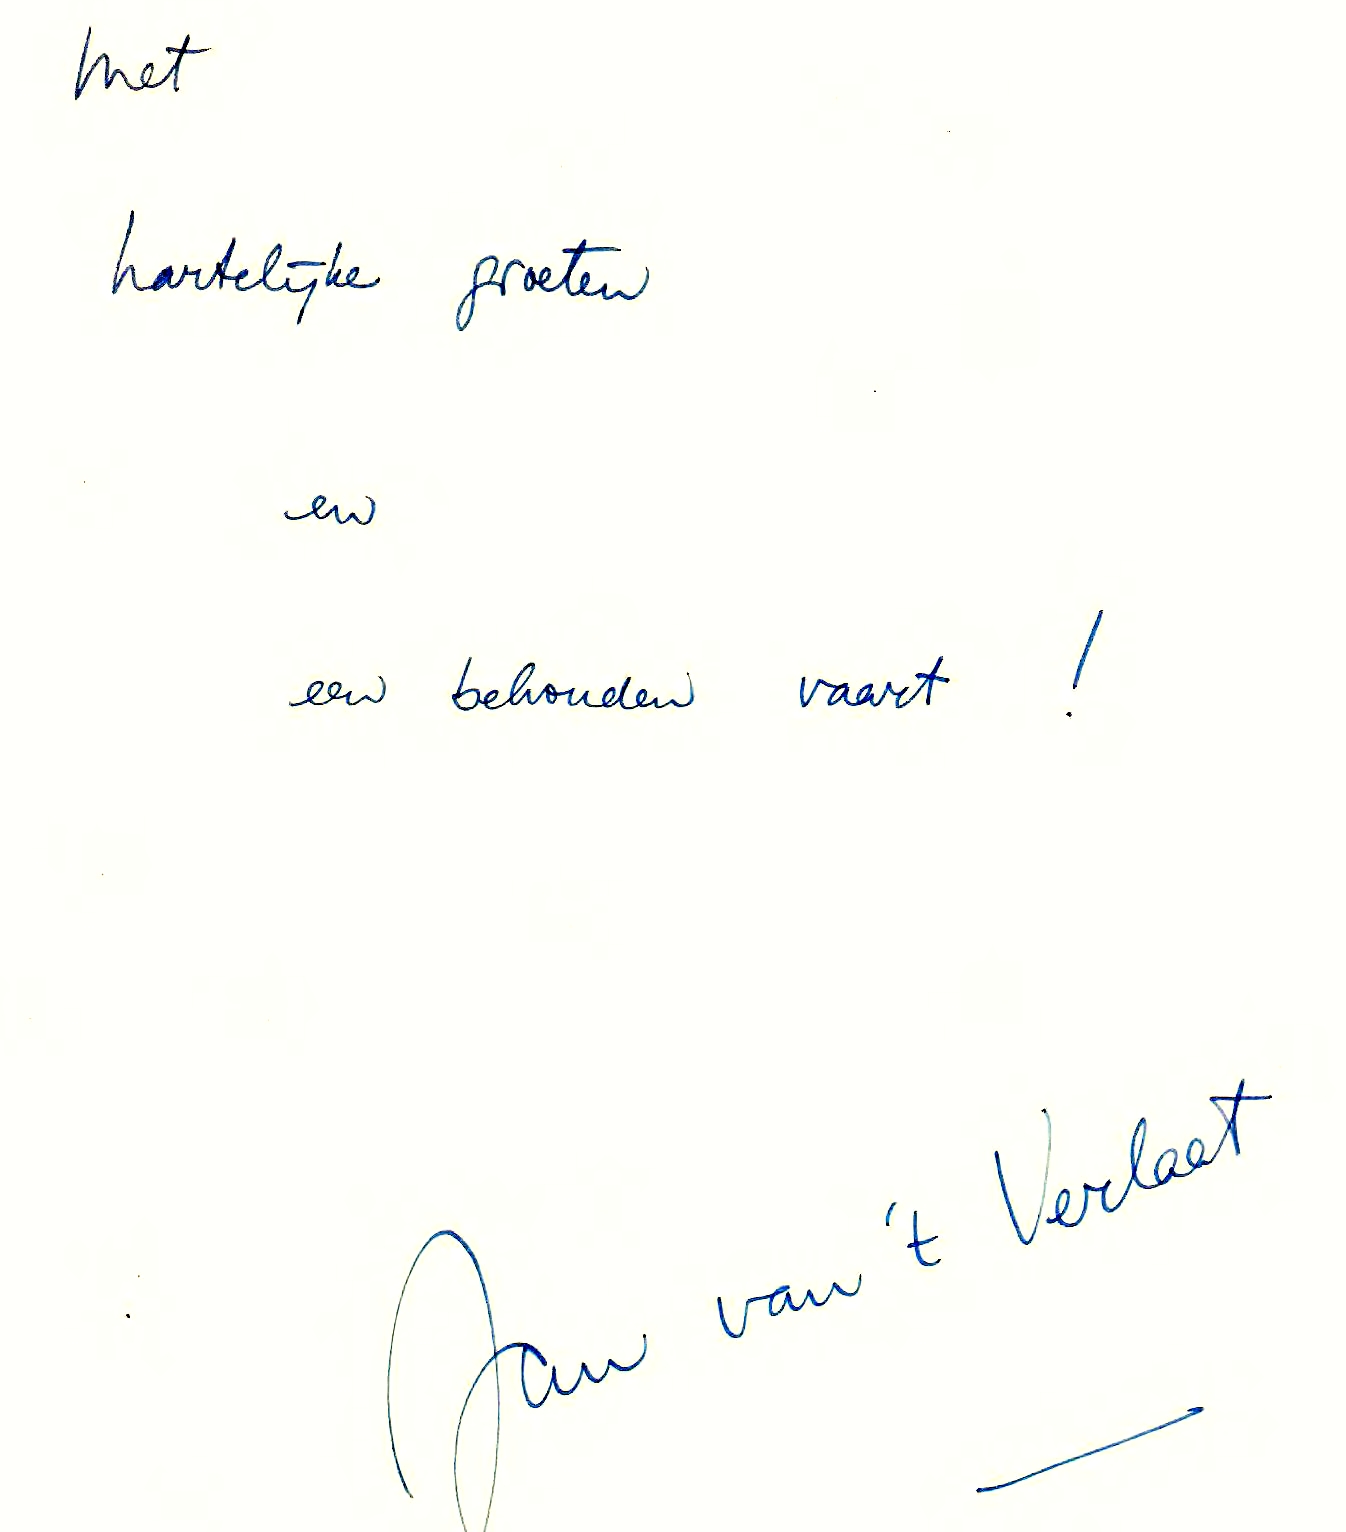 Met
hartelijke groeten
en
een behouden vaart!
Jan van 't Verlaat